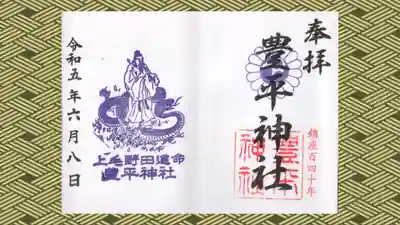 奉拝
豊平神社
鎮座百四十年
豊平神社
上毛野田道命
豊平神社
令和五年六月八日